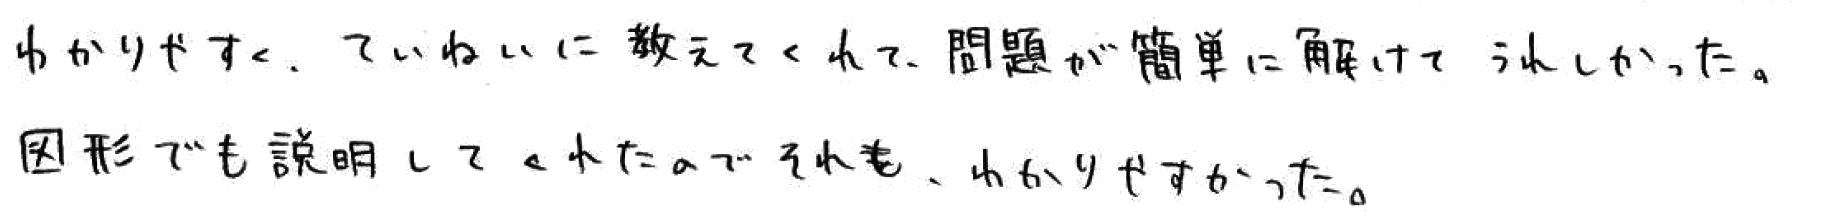 わかりやすく、ていねいに教えてくれて、問題が簡単に解けてうれしかった。
図形でも説明してくれたのでそれも、わかりやすかった。